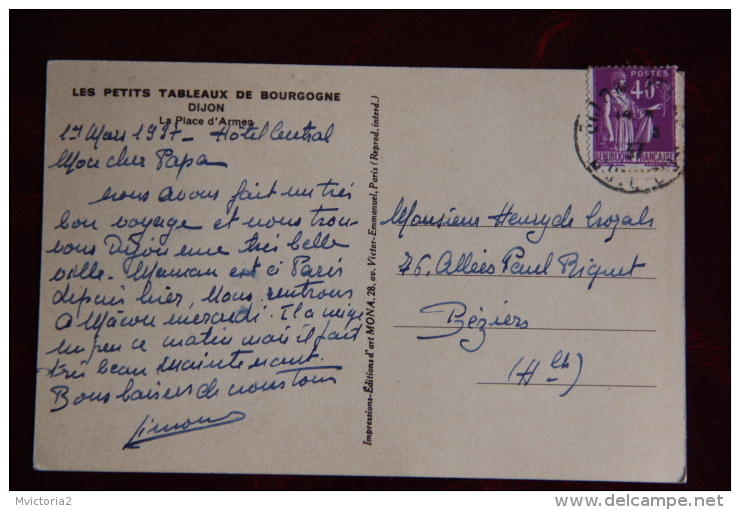 LES PETITS TABLEAUX DE BOURGOGNE
DIJON
La Place d'Armes
1937 - Hôtel Central
Mon cher Papa
nous avons fait un très
bon voyage et nous trou-
vons Dijon une très belle
ville. Maman est à Paris
depuis hier, nous rentrons
à Mâcon mercredi. Il a neigé
un peu ce matin mais il fait
très beau maintenant.
Bons baisers de nous tous
Simone
Impressions-Éditions d'art MONA, 28, av. Victor-Emmanuel, Paris (Reprod. interd.)
POSTES
40c
RÉPUBLIQUE FRANÇAISE
Monsieur Henry de Crozals
76, Allées Paul Riquet
Béziers
(Hlt)
Mvictoria2
www.delcampe.net